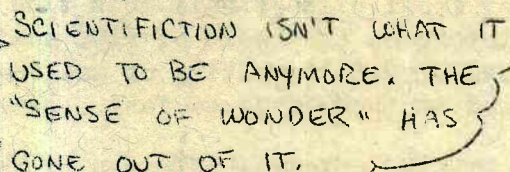 SCIENTIFICTION ISN'T WHAT IT
USED TO BE ANYMORE. THE
"SENSE OF WONDER" HAS
GONE OUT OF IT.